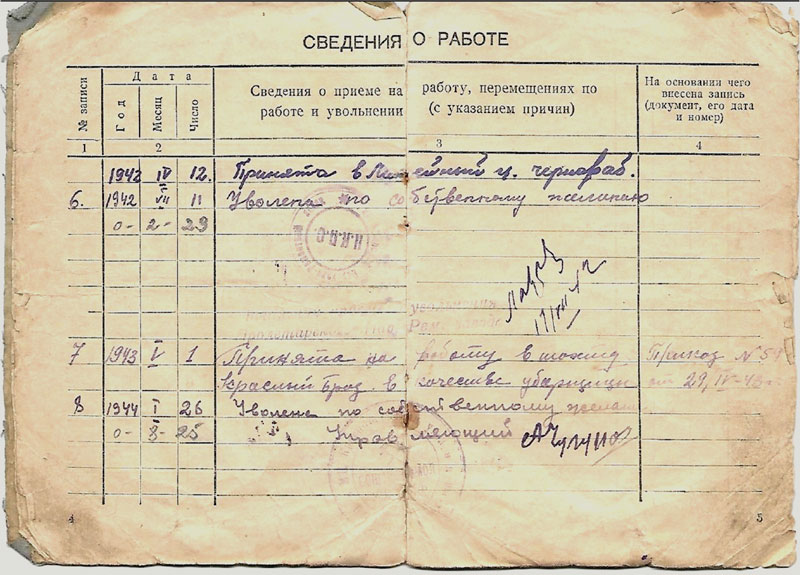 СВЕДЕНИЯ О РАБОТЕ
№ записи
Дата
Год
Месяц
Число
Сведения о приеме на работу, перемещениях по
работе и увольнении (с указанием причин)
На основании чего
внесена запись
(документ, его дата
и номер)
1 2 3 4
1942 IV 12. Принята в Литейный ц. чернораб.
6. 1942 VII 11 Уволена по собственному желанию
0- 2- 29
Н.К.П.С
7 1943 V 1 Принята на работу в Приказ № 54
Красный в качестве уборщицы от 29/IV-43
8 1944 I 26 Уволена по собственному
0- 8- 25 Управляющий
4
5